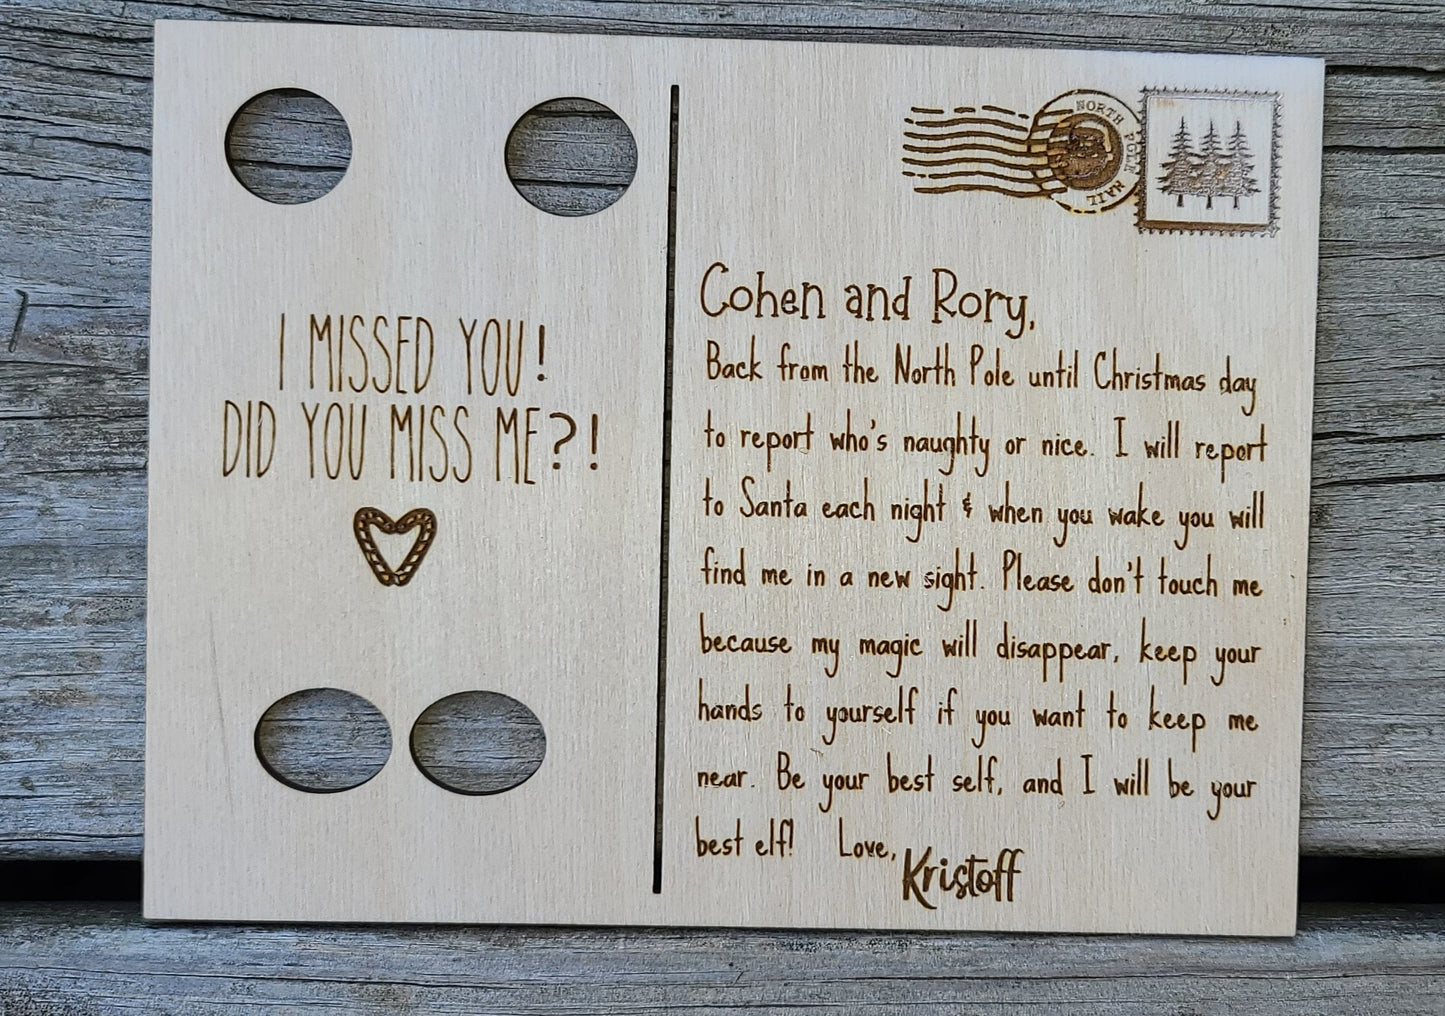 I MISSED YOU!
DID YOU MISS ME?!
NORTH POLE MAIL
Cohen and Rory,
Back from the North Pole until Christmas day
to report who's naughty or nice. I will report
to Santa each night & when you wake you will
find me in a new sight. Please don't touch me
because my magic will disappear, keep your
hands to yourself if you want to keep me
near. Be your best self, and I will be your
best elf! Love, Kristoff